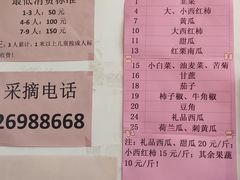 最低消费标准
1-3 人: 50 元
4-6 人: 100 元
7-9 人: 150 元
采摘电话
26988668
1 韭菜
4 大、小西红柿
9 黄瓜
10 大西红柿
11 甜瓜
13 红栗南瓜
15 小白菜、油麦菜、苦菊
16 甘蔗
18 茄子
19 柿子椒、牛角椒
20 豆角
24 礼品西瓜
25 荷兰瓜、刺黄瓜
注:礼品西瓜、甜瓜 20 元/斤;
小西红柿 15 元/斤; 其余果蔬
10 元/斤!